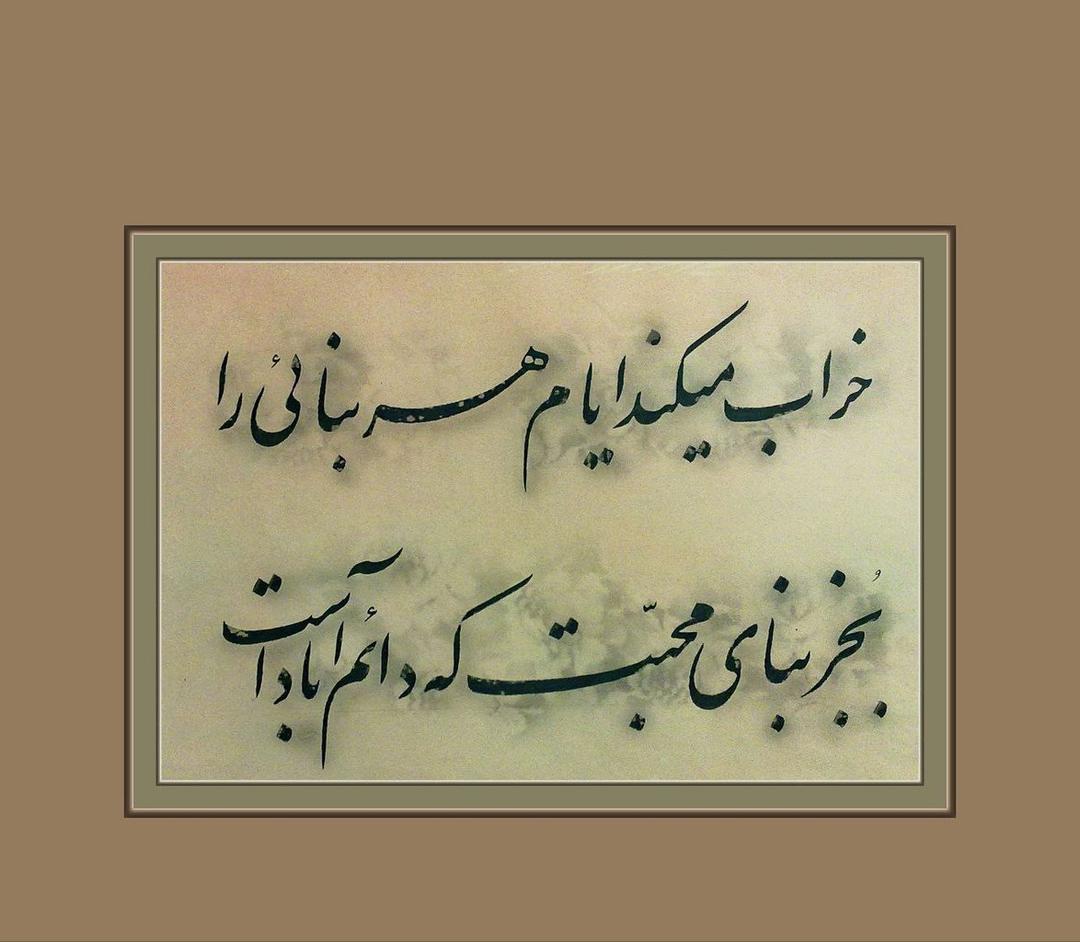 خراب میکند ایام هر بنائی را
بجُز بنای محبّت که دائم آباد است